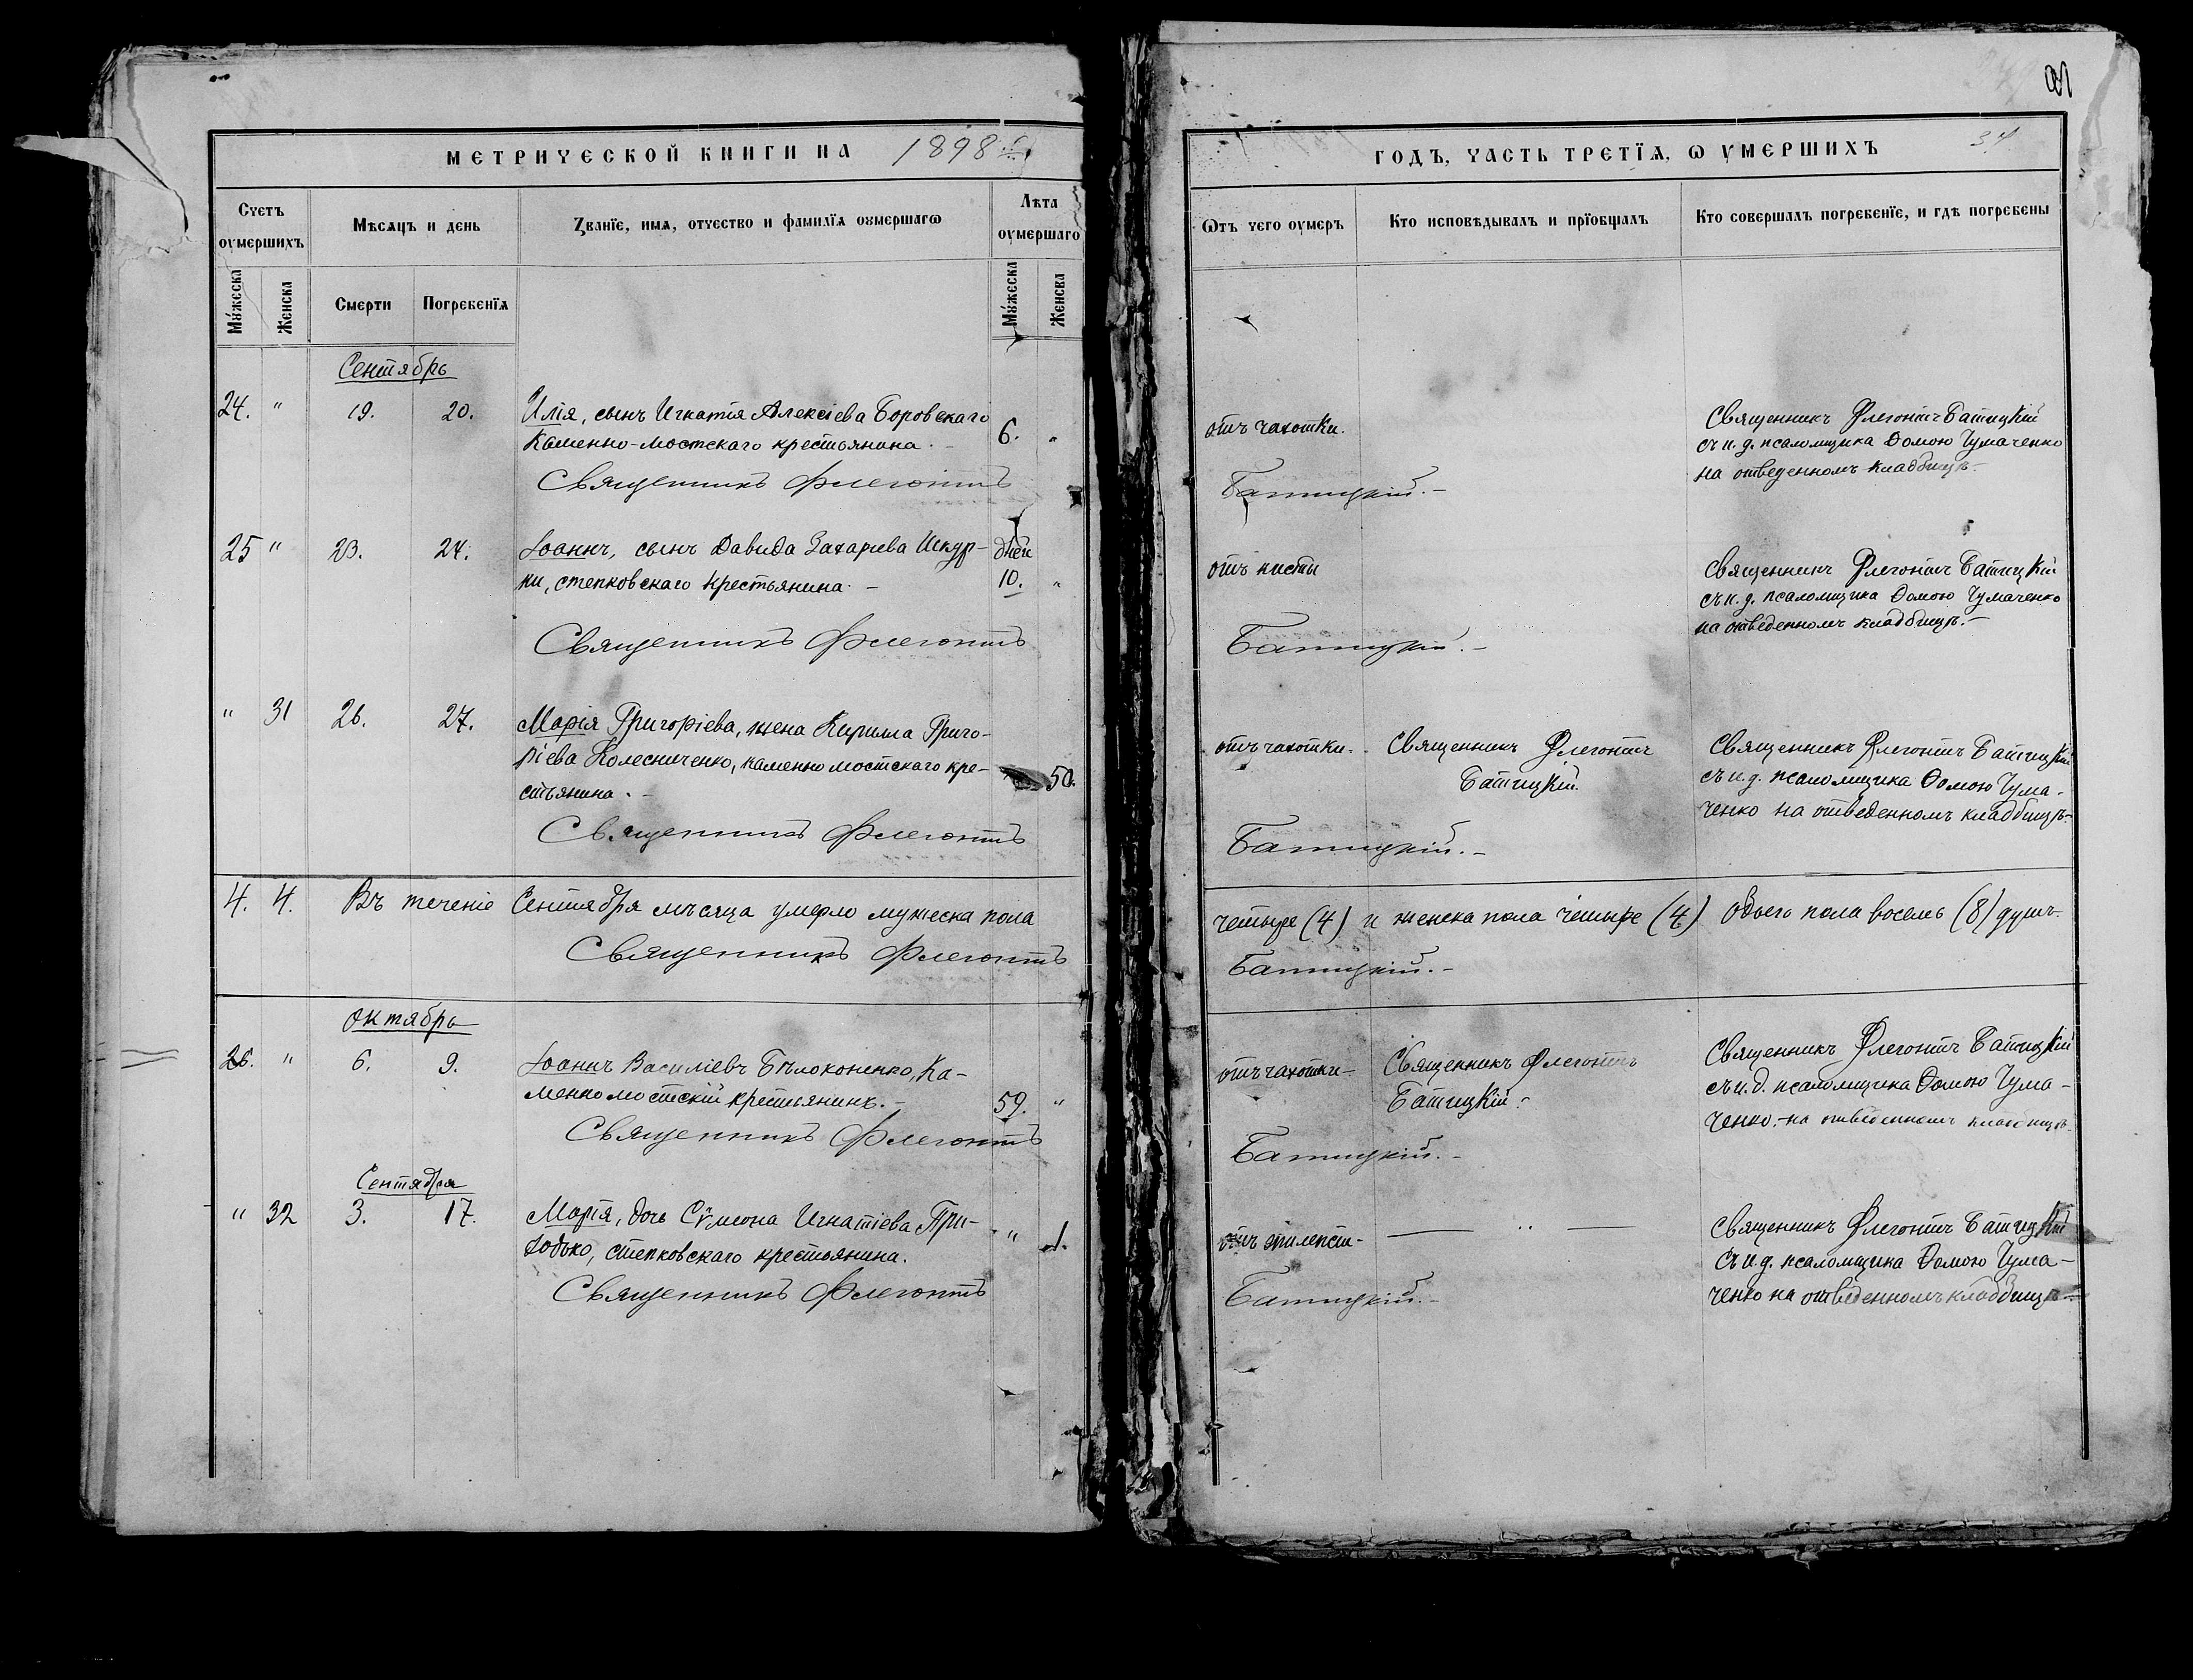 МЕТРИЧЕСКОЙ КНИГИ НА 1898
Счетъ оумершихъ
Мѣсяцъ и день
Званїе, имя, отчество и фамилїя оумершагѡ
Лѣта оумершаго
Мужеска
Женска
Смерти
Погребенїя
Мужеска
Женска
Сентябрь
24. " 19. 20. Илія, сынъ Игнатія Алексіева Боровскаго
Каменно-мостскаго крестьянина. 6. "
Священникъ Флегонтъ
25 " 23. 24. Іоаннъ, сынъ Давида Захаріева Шкур-
ки, степковскаго крестьянина. дней 10. "
Священникъ Флегонтъ
" 31 26. 27. Марія Григоріева, жена Кирилла Григо-
ріева Колесниченко, каменномостскаго кре-
стьянина. 50.
Священникъ Флегонтъ
4. 4. Въ теченіе Сентября мѣсяца умерло мужеска пола
Священникъ Флегонтъ
Октябрь
26. " 6. 9. Іоаннъ Василіевъ Бѣлоконенко, Ка-
менномостскій крестьянинъ. 59. "
Священникъ Флегонтъ
Сентября
" 32 3. 17. Марія, дочь Сѵмеона Игнатіева При-
ходько, степковскаго крестьянина. " 1.
Священникъ Флегонтъ
ГОДЪ, ЧАСТЬ ТРЕТЇЯ, Ѡ УМЕРШИХЪ
Ѿтъ чего оумеръ
Кто исповѣдывалъ и прїобщалъ
Кто совершалъ погребенїе, и гдѣ погребены
отъ чахотки.
Священникъ Флегонтъ Батицкій
съ и. д. псаломщика Ѳомою Чумаченко
на отведенномъ кладбищѣ.
Батицкій.
Священникъ Флегонтъ Батицкій
съ и. д. псаломщика Ѳомою Чумаченко
на отведенномъ кладбищѣ.
Батицкій.
отъ чахотки. Священникъ Флегонтъ
Батицкій.
Священникъ Флегонтъ Батицкій
съ и. д. псаломщика Ѳомою Чума-
ченко на отведенномъ кладбищѣ.
Батицкій.
четыре (4) и женска пола четыре (4) обоего пола восемь (8) душъ.
Батицкій.
отъ чахотки Священникъ Флегонтъ
Батицкій.
Священникъ Флегонтъ Батицкій
съ и. д. псаломщика Ѳомою Чума-
ченко на отведенномъ кладбищѣ.
Батицкій.
отъ эпилепсіи
Священникъ Флегонтъ Батицкій
съ и. д. псаломщика Ѳомою Чума-
ченко на отведенномъ кладбищѣ
Батицкій.